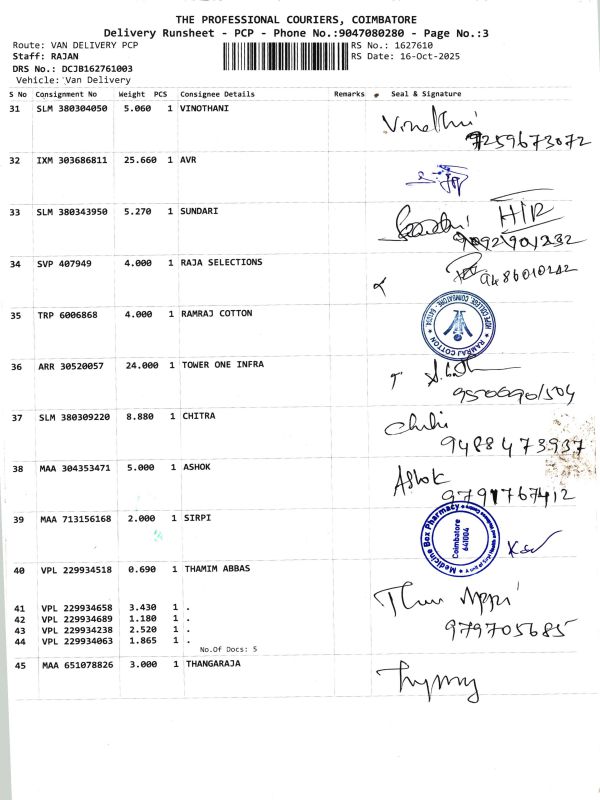 THE PROFESSIONAL COURIERS, COIMBATORE
Delivery Runsheet - PCP - Phone No.:9047080280 - Page No.:3
Route: VAN DELIVERY PCP
RS No.: 1627610
Staff: RAJAN
RS Date: 16-Oct-2025
DRS No.: DCJB162761003
Vehicle: Van Delivery
S No Consignment No Weight PCS Consignee Details Remarks Seal & Signature
31 SLM 380304050 5.060 1 VINOTHANI
Vinothni
9259673072
32 IXM 303686811 25.660 1 AVR
33 SLM 380343950 5.270 1 SUNDARI
34 SVP 407949 4.000 1 RAJA SELECTIONS
9486010212
35 TRP 6006868 4.000 1 RAMRAJ COTTON
RAMRAJ COTTON
36 ARR 30520057 24.000 1 TOWER ONE INFRA
37 SLM 380309220 8.880 1 CHITRA
9488473937
38 MAA 304353471 5.000 1 ASHOK
Ashok
9791767412
39 MAA 713156168 2.000 1 SIRPI
Medicine Box Pharmacy
Coimbatore
641004
40 VPL 229934518 0.690 1 THAMIM ABBAS
41 VPL 229934658 3.430 1 .
42 VPL 229934689 1.180 1 .
43 VPL 229934238 2.520 1 .
44 VPL 229934063 1.865 1 .
979705685
No.Of Docs: 5
45 MAA 651078826 3.000 1 THANGARAJA